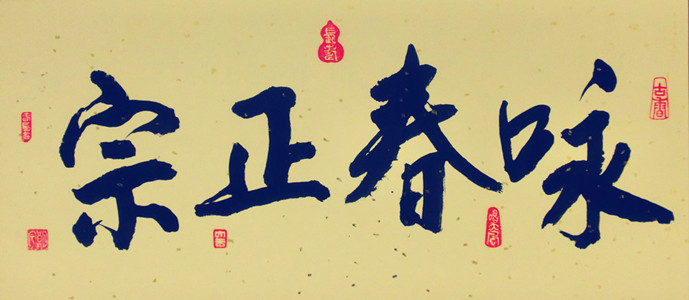 咏春正宗